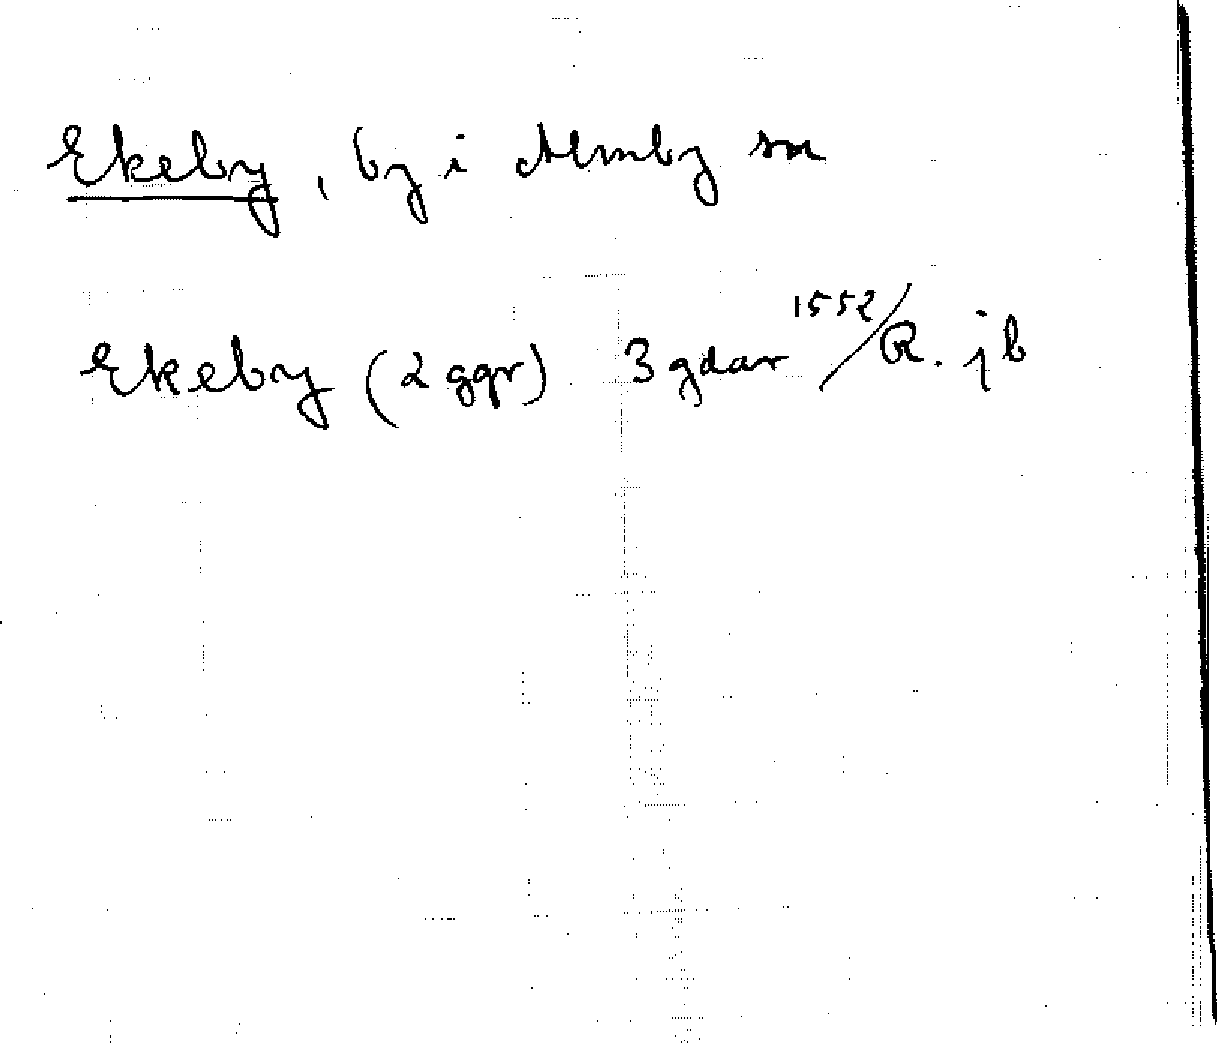 Ekeby, by i Almby sn
Ekeby (2 ggr) 3 gdar 1552/R. jb